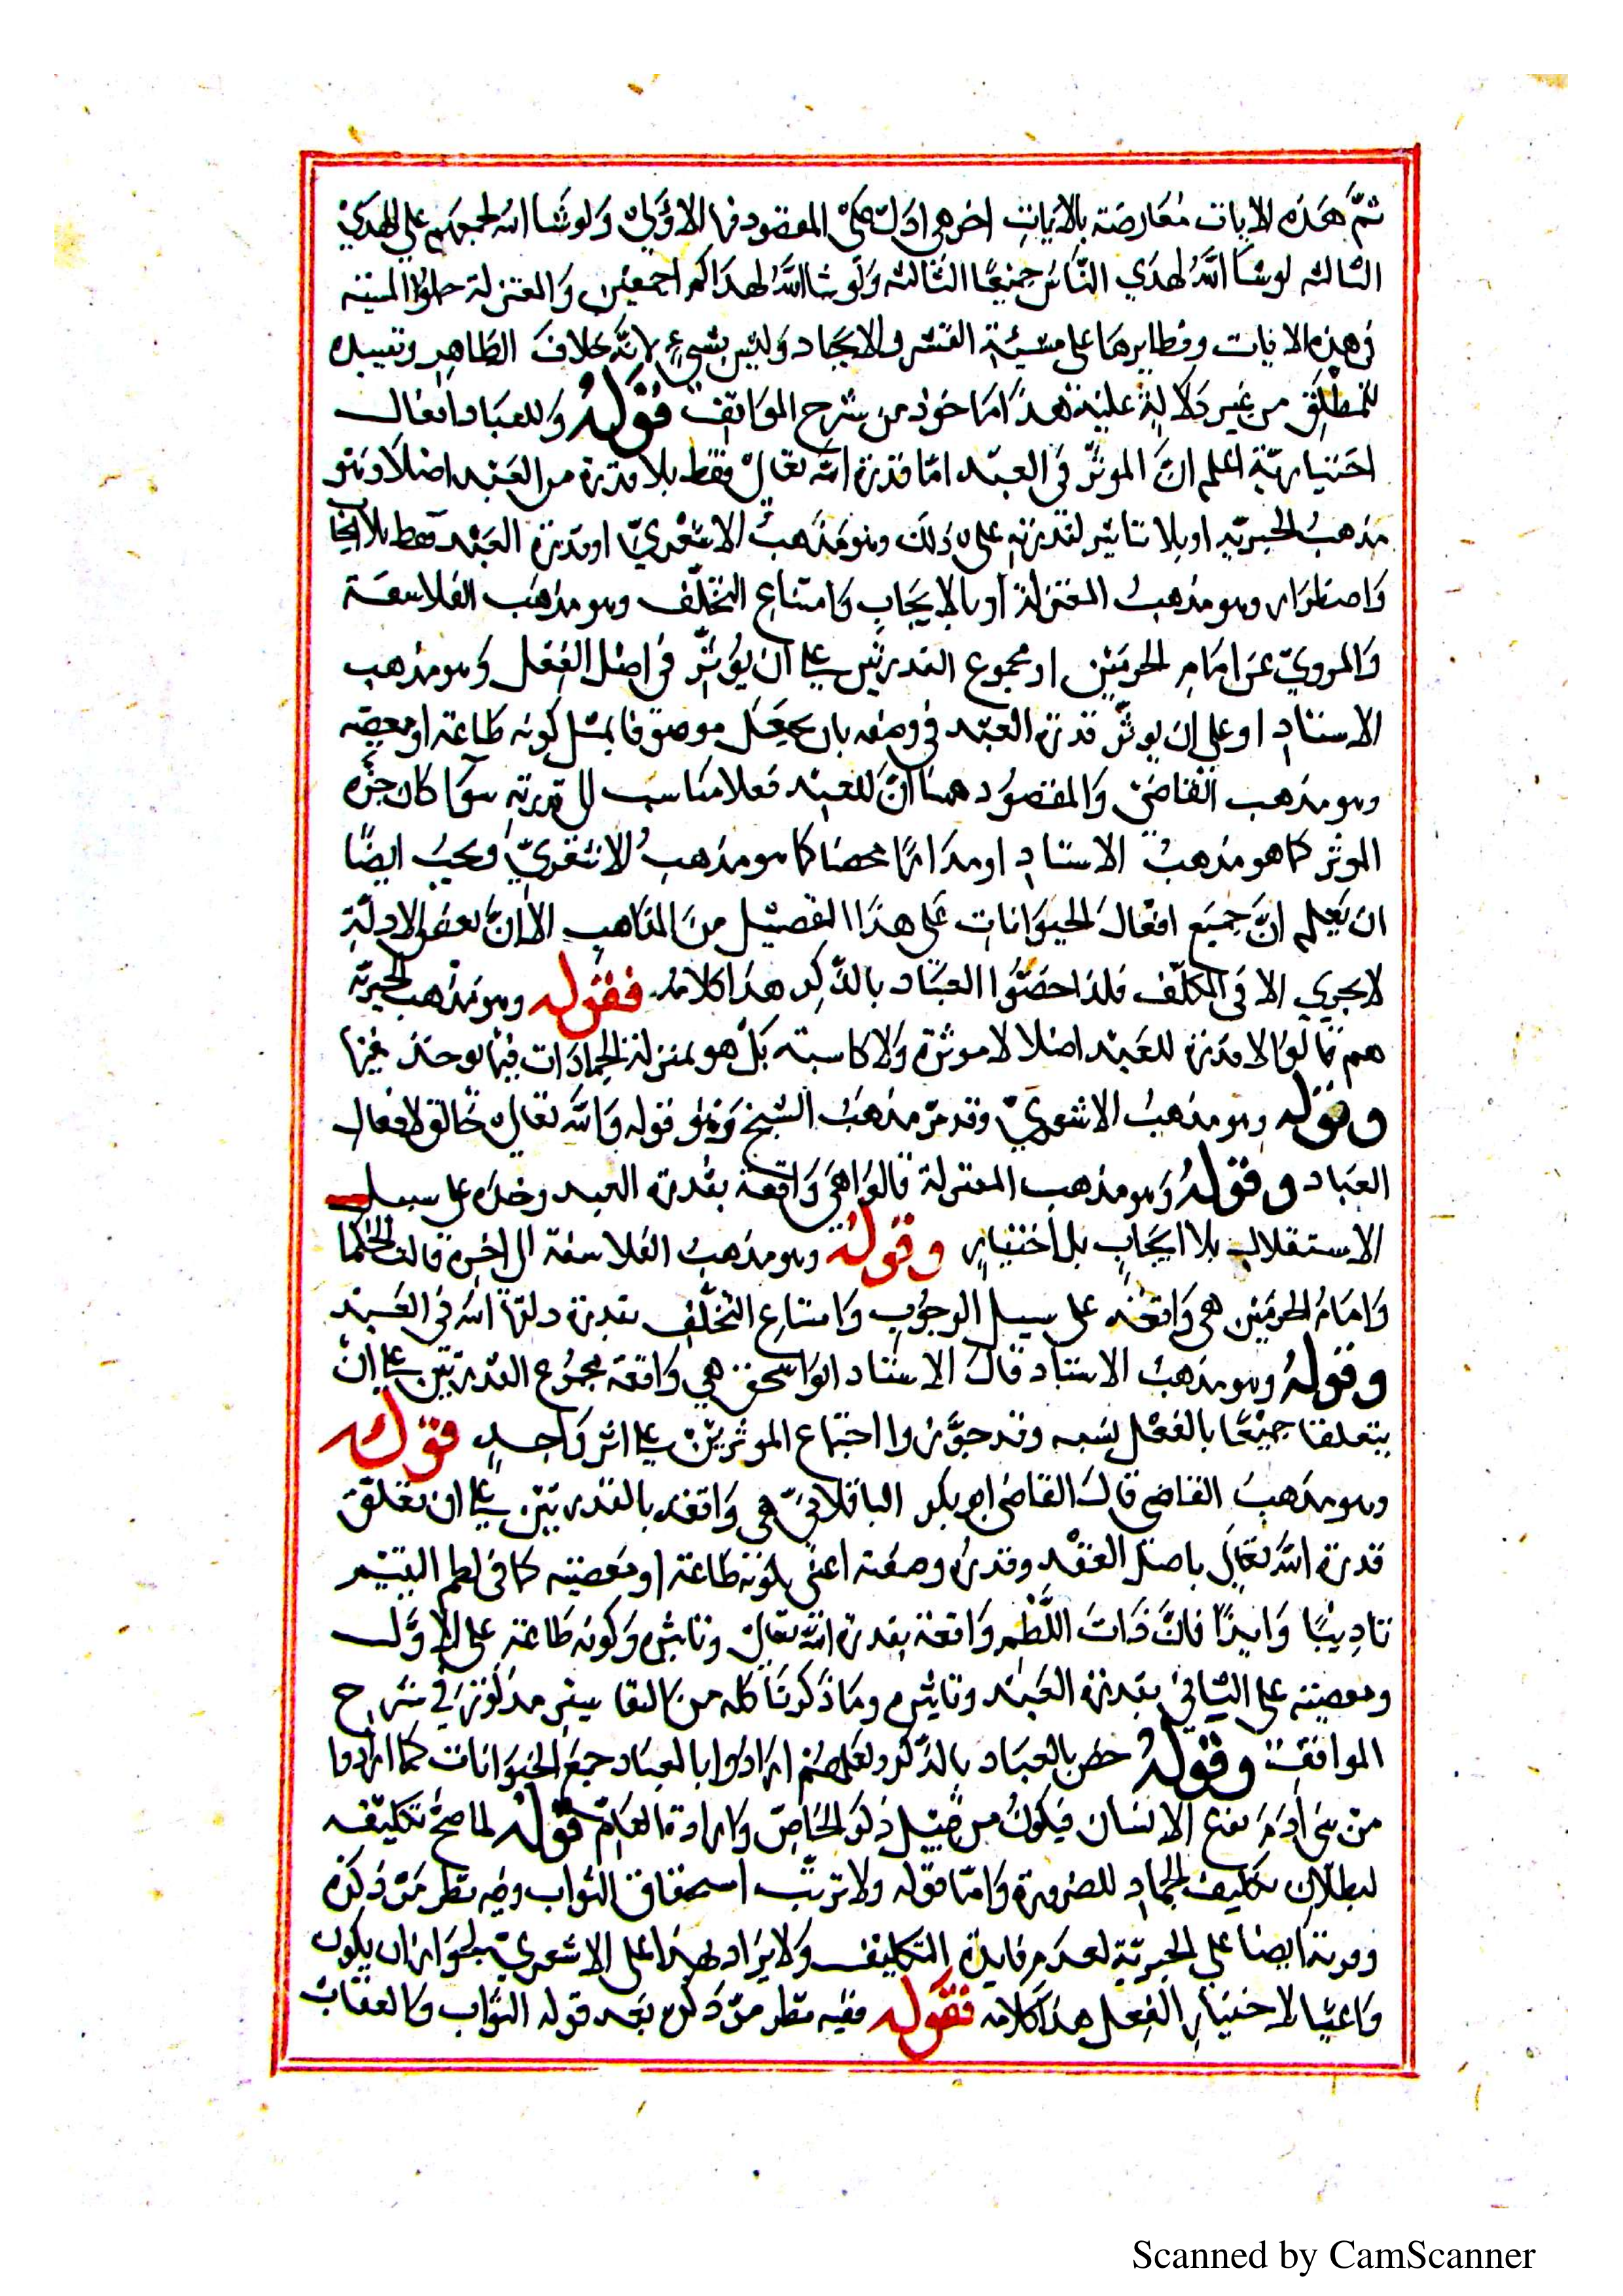 ثمّ هذه الايات معارضة بالايات اخر هي ادلّ على المقصود منها الاولى ولو شا الله لجمعهم على الهدي
الثالثه لو شا الله لهدي الناس جميعا الثالثه ولو شا الله لهداكم اجمعين والمعتزلة حملوا المشيئه
في هذه الايات ونظايرها على مشيّة القسر والايجاد وليس بشيء لانه خلاف الظاهر وتقييد
للمطلق من غير دلالة عليه هذا ماخوذ من شرح المواقف قوله وللعباد افعال
اختياريّة اعلم انّ الموثّر في العبد امّا قدرة الله تعالى فقط بلا قدرة من العبد اصلا وهو
مذهب الجبريّه او بلا تاثير لقدرته على ذلك وهو مذهب الاشعريّ او قدرة العبد فقط بلا ايجا
واضطرار وهو مذهب المعتزلة او بالايجاب وامتناع التخلّف وهو مذهب الفلاسفة
والمرويّ عن امام الحرمين او مجموع القدرتين على ان يؤثّر في اصل الفعل وهو مذهب
الاستاد او على ان يوثّر قدرة العبد في وصفه بان يجعل موصوفا بمثل كونه طاعة او معصيه
وهو مذهب القاضي والمقصود هنا انّ للعبد فعلا مناسب لل قدرته سوا كان جزء
الموثر كما هو مذهب الاستاد او مدارا محضا كما هو مذهب الاشعريّ ويجب ايضًا
ان يعلم انّ جميع افعال الحيوانات على هذا التفصيل من المذاهب الا انّ بعض الادلّة
لا يجري الا في المكلّف فلذا خصّوا العباد بالذّكر هذا كلامه فقوله وهو مذهب الجبريّه
هم قالوا لا قدرة للعبد اصلا لا موثرة ولا كاسبة بل هو بمنزلة الجمادات فيما يوجد فيها
وقوله وهو مذهب الاشعريّ وقد مرّ مذهب الشيخ وهو قوله والله تعالى خالق لافعال
العباد وقوله وهو مذهب المعتزلة قالوا هي واقعة بقدرة العبد وحده على سبيل
الاستقلال بلا ايجاب بل اختيار وقوله وهو مذهب الفلاسفة الى اخره قالت الحكما
وامام الحرمين هي واقعة على سبيل الوجوب وامتناع التخلّف بقدرة الله في العبد
وقوله وهو مذهب الاستاد قال الاستاد ابو اسحق هي واقعة بمجموع القدرتين على ان
يتعلقا جميعًا بالفعل نفسه وقد جوّزوا اجتماع الموثرين على اثر واحد قوله
وهو مذهب القاضي قال القاضي ابو بكر الباقلانيّ هي واقعة بالقدرتين على ان تعلّق
قدرة الله تعالى باصل الفعل وقدره وصفته اعني بكونه طاعة او معصيته كما في لطم اليتيم
تاديبًا وايذًا فانّ ذات اللّطم واقعة بقدرة الله تعالى وتاثيره وكونه طاعة على الاوّل
ومعصيته على الثاني بقدرة العبد وتاثيره وما ذكرنا كله من التفاسير مذكورة في شرح
المواقف وقوله خصّ بالعباد بالذّكر ولعلهم ارادوا بالعباد جميع الحيوانات كما ارادوا
من بني ادم نوع الانسان فيكون من قبيل ذكر الخاصّ وارادة العامّ قوله لما صحّ تكليفه
لبطلان تكليف الجماد للضرورة وامّا قوله ولا ترتّب استحقاق الثواب وفيه نظر مرّ ذكره
ايضا على الجبريّة لعدم فايدة التكليف ولا يراد بهذا على الاشعريّ لجواز ان يكون
داعيا لاختيار الفعل هذا كلامه فقوله ففيه نظر مرّ ذكره بعد قوله الثواب والعقاب
Scanned by CamScanner